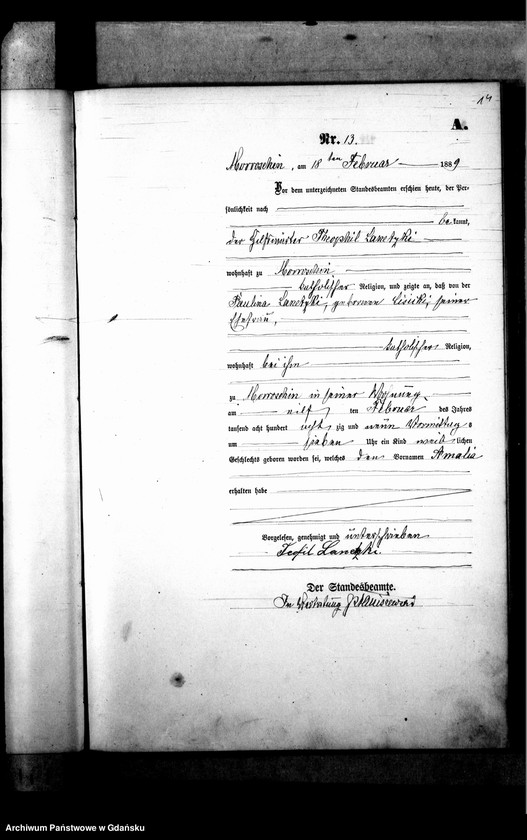 14
A.
Nr. 13.
Morroschin, am 18 ten Februar 1889
Vor dem unterzeichneten Standesbeamten erschien heute, der Per-
sönlichkeit nach
bekannt,
der Theophil Lanetzki
wohnhaft zu Morroschin
katholischer Religion, und zeigte an, daß von der
Paulina Lanetzki, geborenen seiner
Ehefrau,
katholischer Religion,
wohnhaft bei ihm
zu Morroschin in seiner Wohnung
am elf ten Februar des Jahres
tausend acht hundert acht zig und neun Vormittag s
um sieben Uhr ein Kind weib lichen
Geschlechts geboren worden sei, welches den Vornamen Amalia
erhalten habe
Vorgelesen, genehmigt und unterschrieben
Teofil
Der Standesbeamte.
In Vertretung
Archiwum Państwowe w Gdańsku